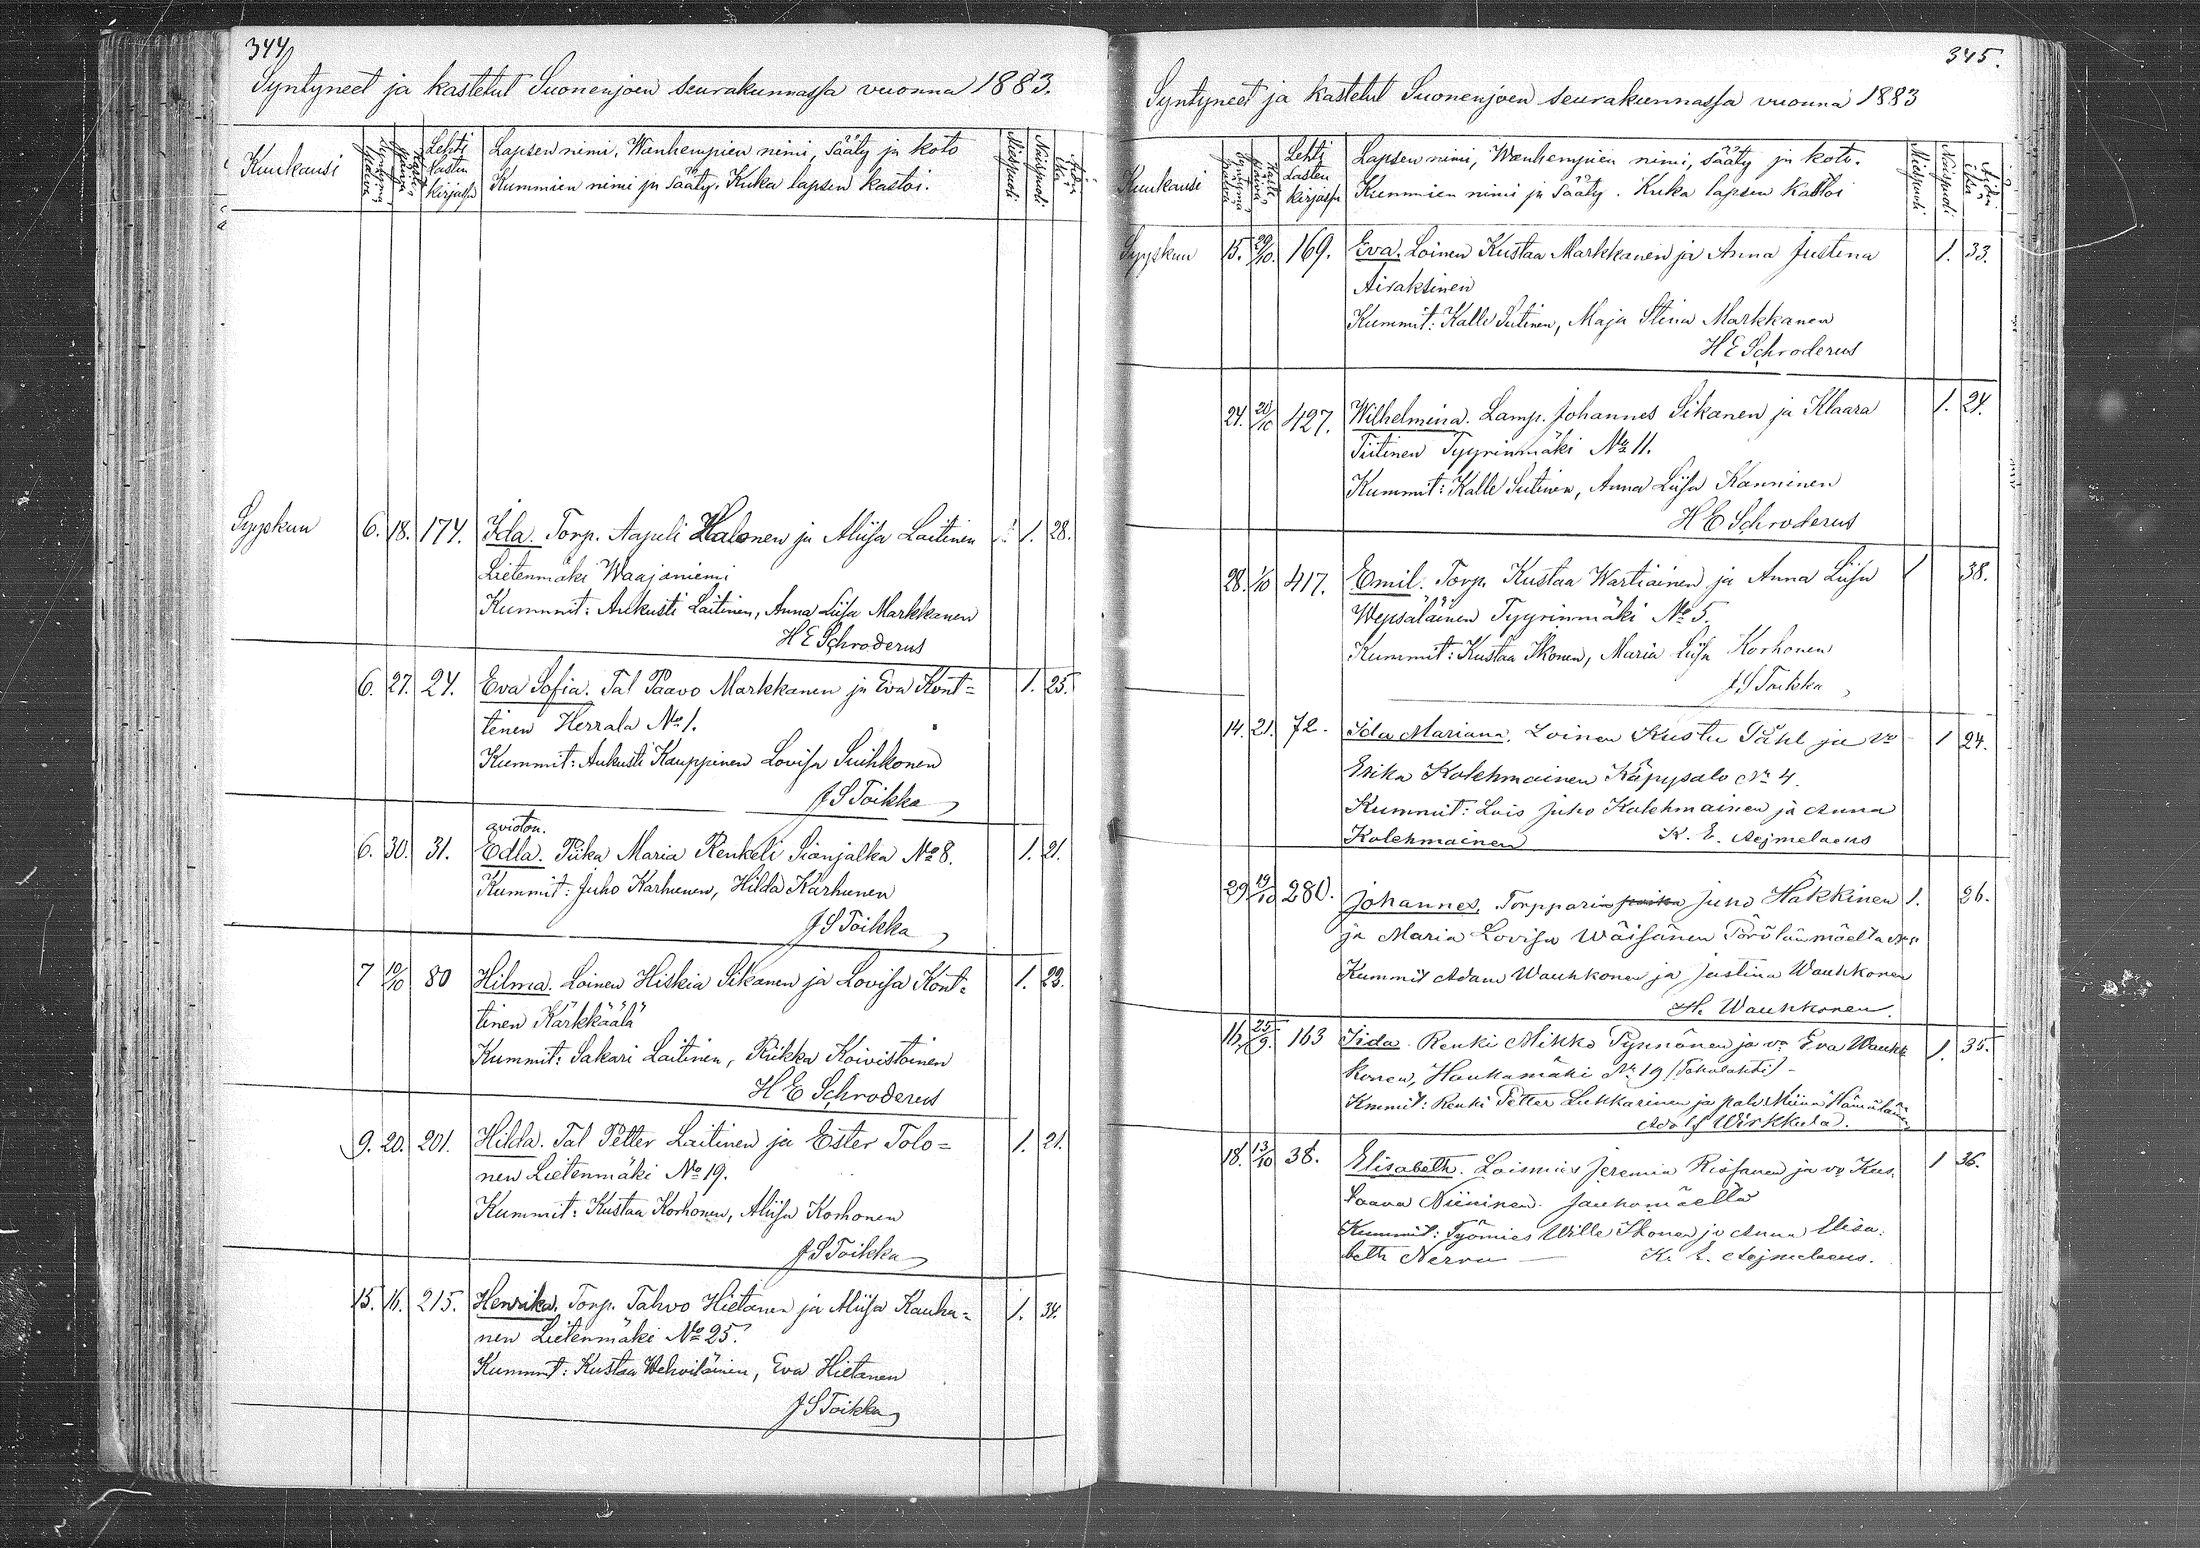 344
Syntyneet ja kastetut Suonenjoen seurakunnassa vuonna 1883.
Kuukausi Syntymä päivä Kaste päivä Lehti lasten kirjassa Lapsen nimi, Wanhempien nimi, sääty ja koto Miespuoli Naispuoli Äidin ikä
Kummien nimi ja sääty. Kuka lapsen kastoi.
Syyskuu 6. 18. 174. Ida. Torp. Aapeli Halonen ja Aliisa Laitinen 1. 28.
Lietenmäki Waajaniemi
Kummit: Aukusti Laitinen, Anna Liisa Markkanen
H E Schroderus
6. 27. 24. Eva Sofia. Tal Paavo Markkanen ja Eva Kont= 1. 25.
tinen Herrala No 1.
Kummit: Aukusti Kauppinen Lovisa Suihkonen
J S Toikka
avioton.
6. 30. 31. Edla. Piika Maria Renkeli Sianjalka No 8. 1. 21.
Kummit: Juho Karhunen, Hilda Karhunen
J S Toikka
7 19/10 80 Hilma. Loinen Hiskia Sikanen ja Lovisa Kont= 1. 23.
tinen Kärkkäälä
Kummit: Sakari Laitinen, Riikka Koivistoinen
H E Schroderus
9. 20. 201. Hilda. Tal Petter Laitinen ja Ester Tolo= 1. 21.
nen Lietenmäki No 19.
Kummit: Kustaa Korhonen, Aliisa Korhonen
J S Toikka
15. 16. 215. Henrika. Torp. Tahvo Hietanen ja Aliisa Kauha= 1. 34.
nen Lietenmäki No 25.
Kummit: Kustaa Wehviläinen, Eva Hietanen
J S Toikka
345.
Syntyneet ja kastetut Suonenjoen seurakunnassa vuonna 1883
Kuukausi Syntymä päivä Kaste päivä Lehti lasten kirjassa Lapsen nimi, Wanhempien nimi, sääty ja koto. Miespuoli Naispuoli Äidin ikä
Kummien nimi ja sääty. Kuka lapsen kastoi
Syyskuu 15. 20/10. 169. Eva. Loinen Kustaa Markkanen ja Anna Justina 1. 33.
Airaksinen
Kummit: Kalle Sutinen, Maja Stina Markkanen
H E Schroderus
24. 20/10 427. Wilhelmina. Lamp. Johannes Sikanen ja Klaara 1. 24.
Tiitinen Tyyrinmäki No 11.
Kummit: Kalle Sutinen, Anna Liisa Kanninen
H E Schroderus
28. 1/10 417. Emil. Torp. Kustaa Wartiainen ja Anna Liisa 1 38.
Wepsäläinen Tyyrinmäki No 5.
Kummit: Kustaa Ikonen, Maria Liisa Korhonen
J S Toikka
14. 21. 72. Ida Mariana. Loinen Kustu Påhl ja vo 1 24.
Erika Kolehmainen Käpysalo No 4.
Kummit: Lois Juho Kolehmainen ja Anna
Kolehmainen K. E. Aejmelaeus
29 19/10 280. Johannes. Torpparin poika Juho Häkkinen 1. 26.
ja Maria Lovisa Wäisänen Törölänmäellä
Kummit Adam Wauhkonen ja Justina Wauhkonen
H. Wauhkonen.
16. 25/9. 163 Iida. Renki Mikko Pynnönen ja vo Eva Wauh 1. 35.
konen, Haukamäki No 19
Kmmit: Renki Petter Luhkarinen ja palv Miina Hämäläinen
Adolf Wirkkula.
18. 13/10 38. Elisabeth. Loismies Jeremia Rissanen ja vo Kus. 1 36.
taava Niininen. Jauhomäellä
Kummit: Työmies Wille Ikonen ja Anna Elisa.
beth Nervu K. E. Aejmelaeus.